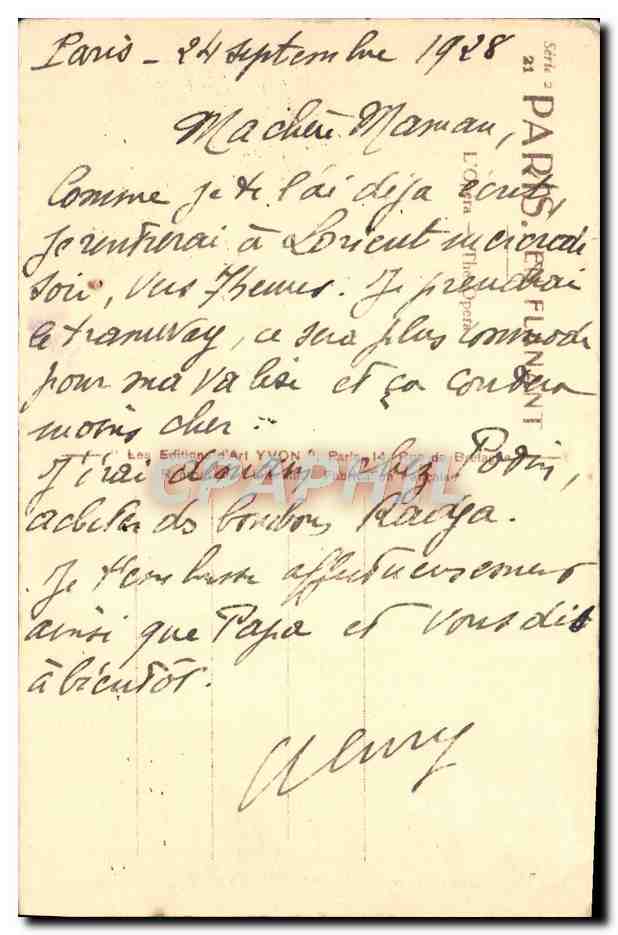 Paris - 24 septembre 1928
Ma chère Maman,
Comme je te l'ai déja écrit,
je rentrerai à Lorient mercredi
soir, vers 7 heures. Je prendrai
le tramway, ce sera plus commode
pour ma valise et ça coutera
moins cher.
J'irai demain chez Potin,
acheter des bonbons Kavga.
Je t'embrasse affectueusement
ainsi que Papa et vous dis
à bientôt.
Henry
Série 2
21 PARIS. EN FLANANT
L'Opéra — The Opera
Les Editions d'Art YVON Paris, 14, Rue de Bretagne
CPAPHIL